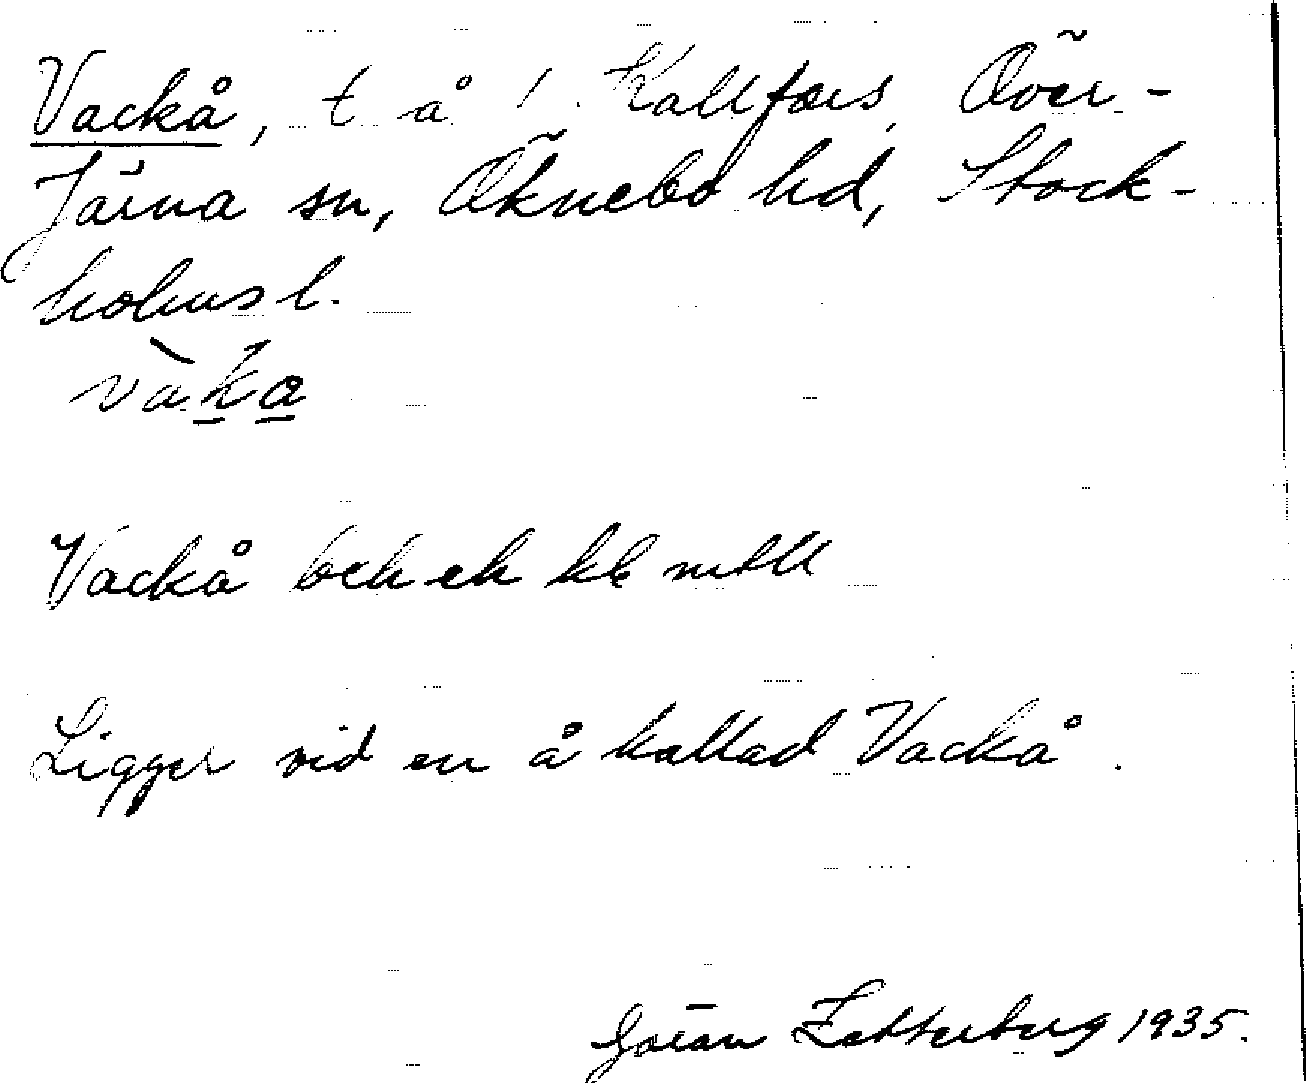 Vackå, t å / Kallfors, Över-
Järna sn, Öknebo hd, Stock-
holms l.
vàka
Vackå bek ek hb mtll
Ligger vid en å kallad Vackå.
Göran Zetterberg 1935.